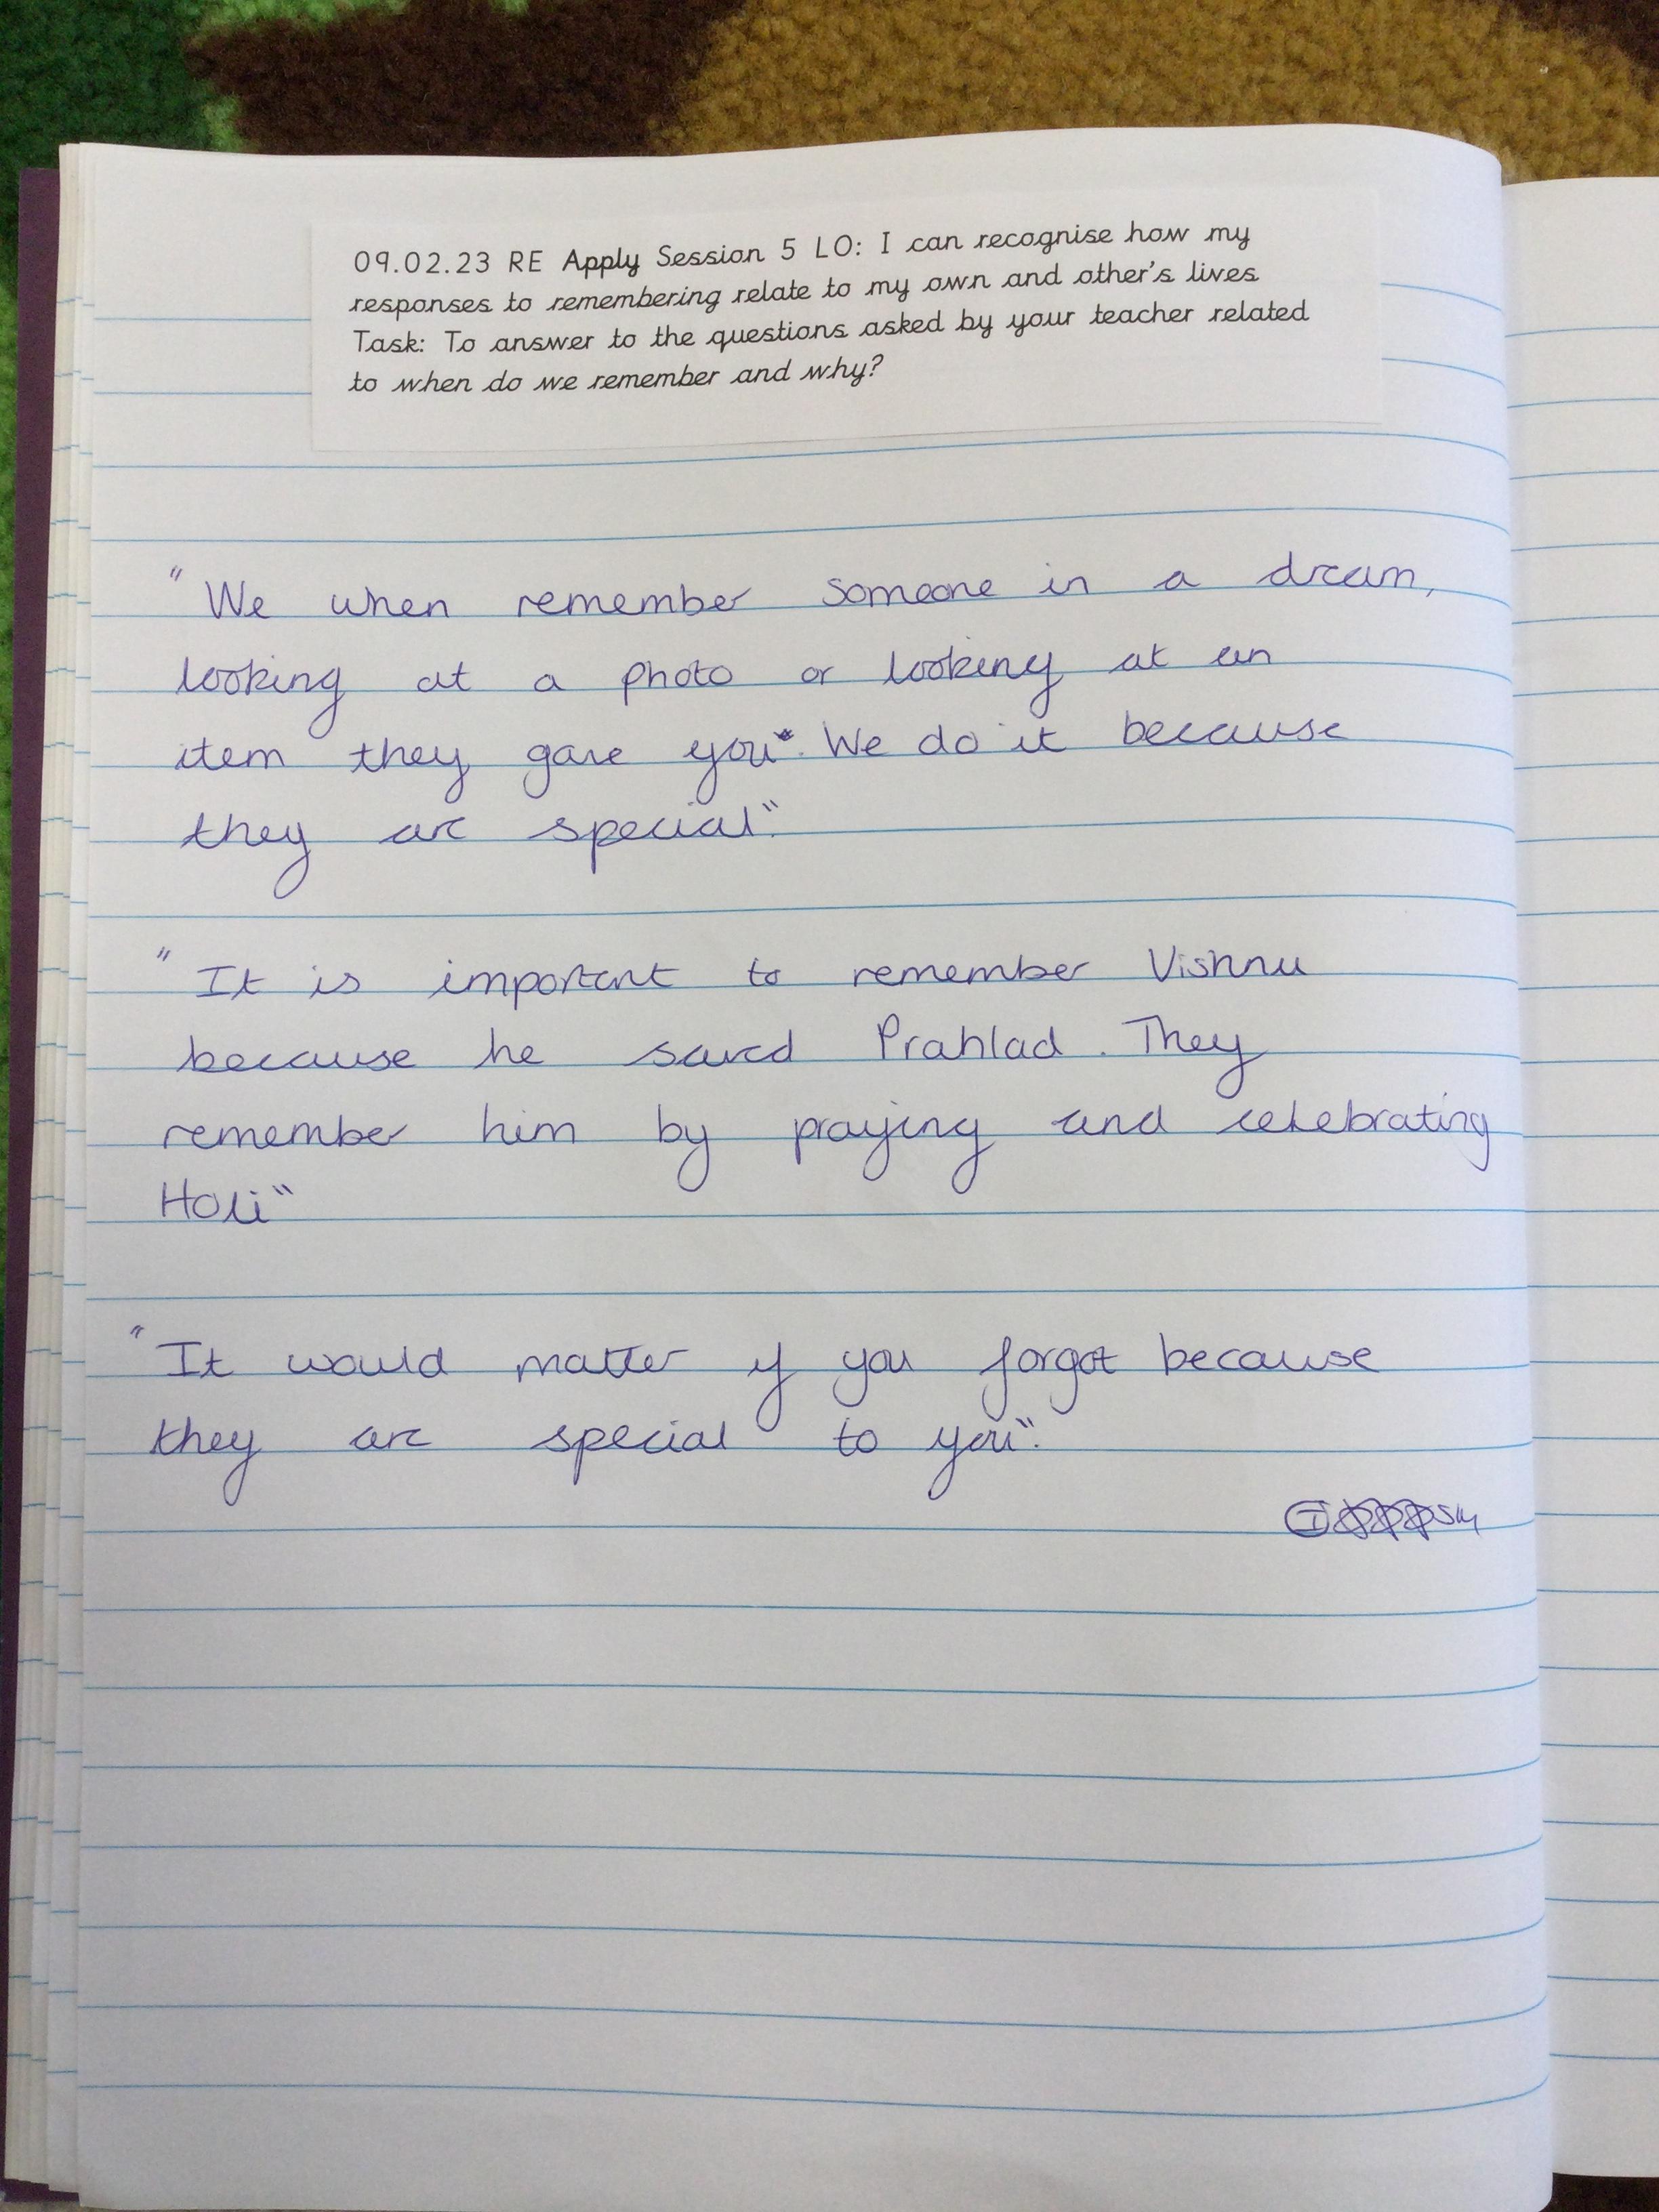 09.02.23 RE Apply Session 5 LO: I can recognise how my
responses to remembering relate to my own and other's lives
Task: To answer to the questions asked by your teacher related
to when do we remember and why?
"We when remember someone in a dream,
looking at a photo or looking at an
item they gave you. We do it because
they are special".
"It is important to remember Vishnu
because he saved Prahlad. They
remember him by praying and celebrating
Holi"
"It would matter if you forgot because
they are special to you".